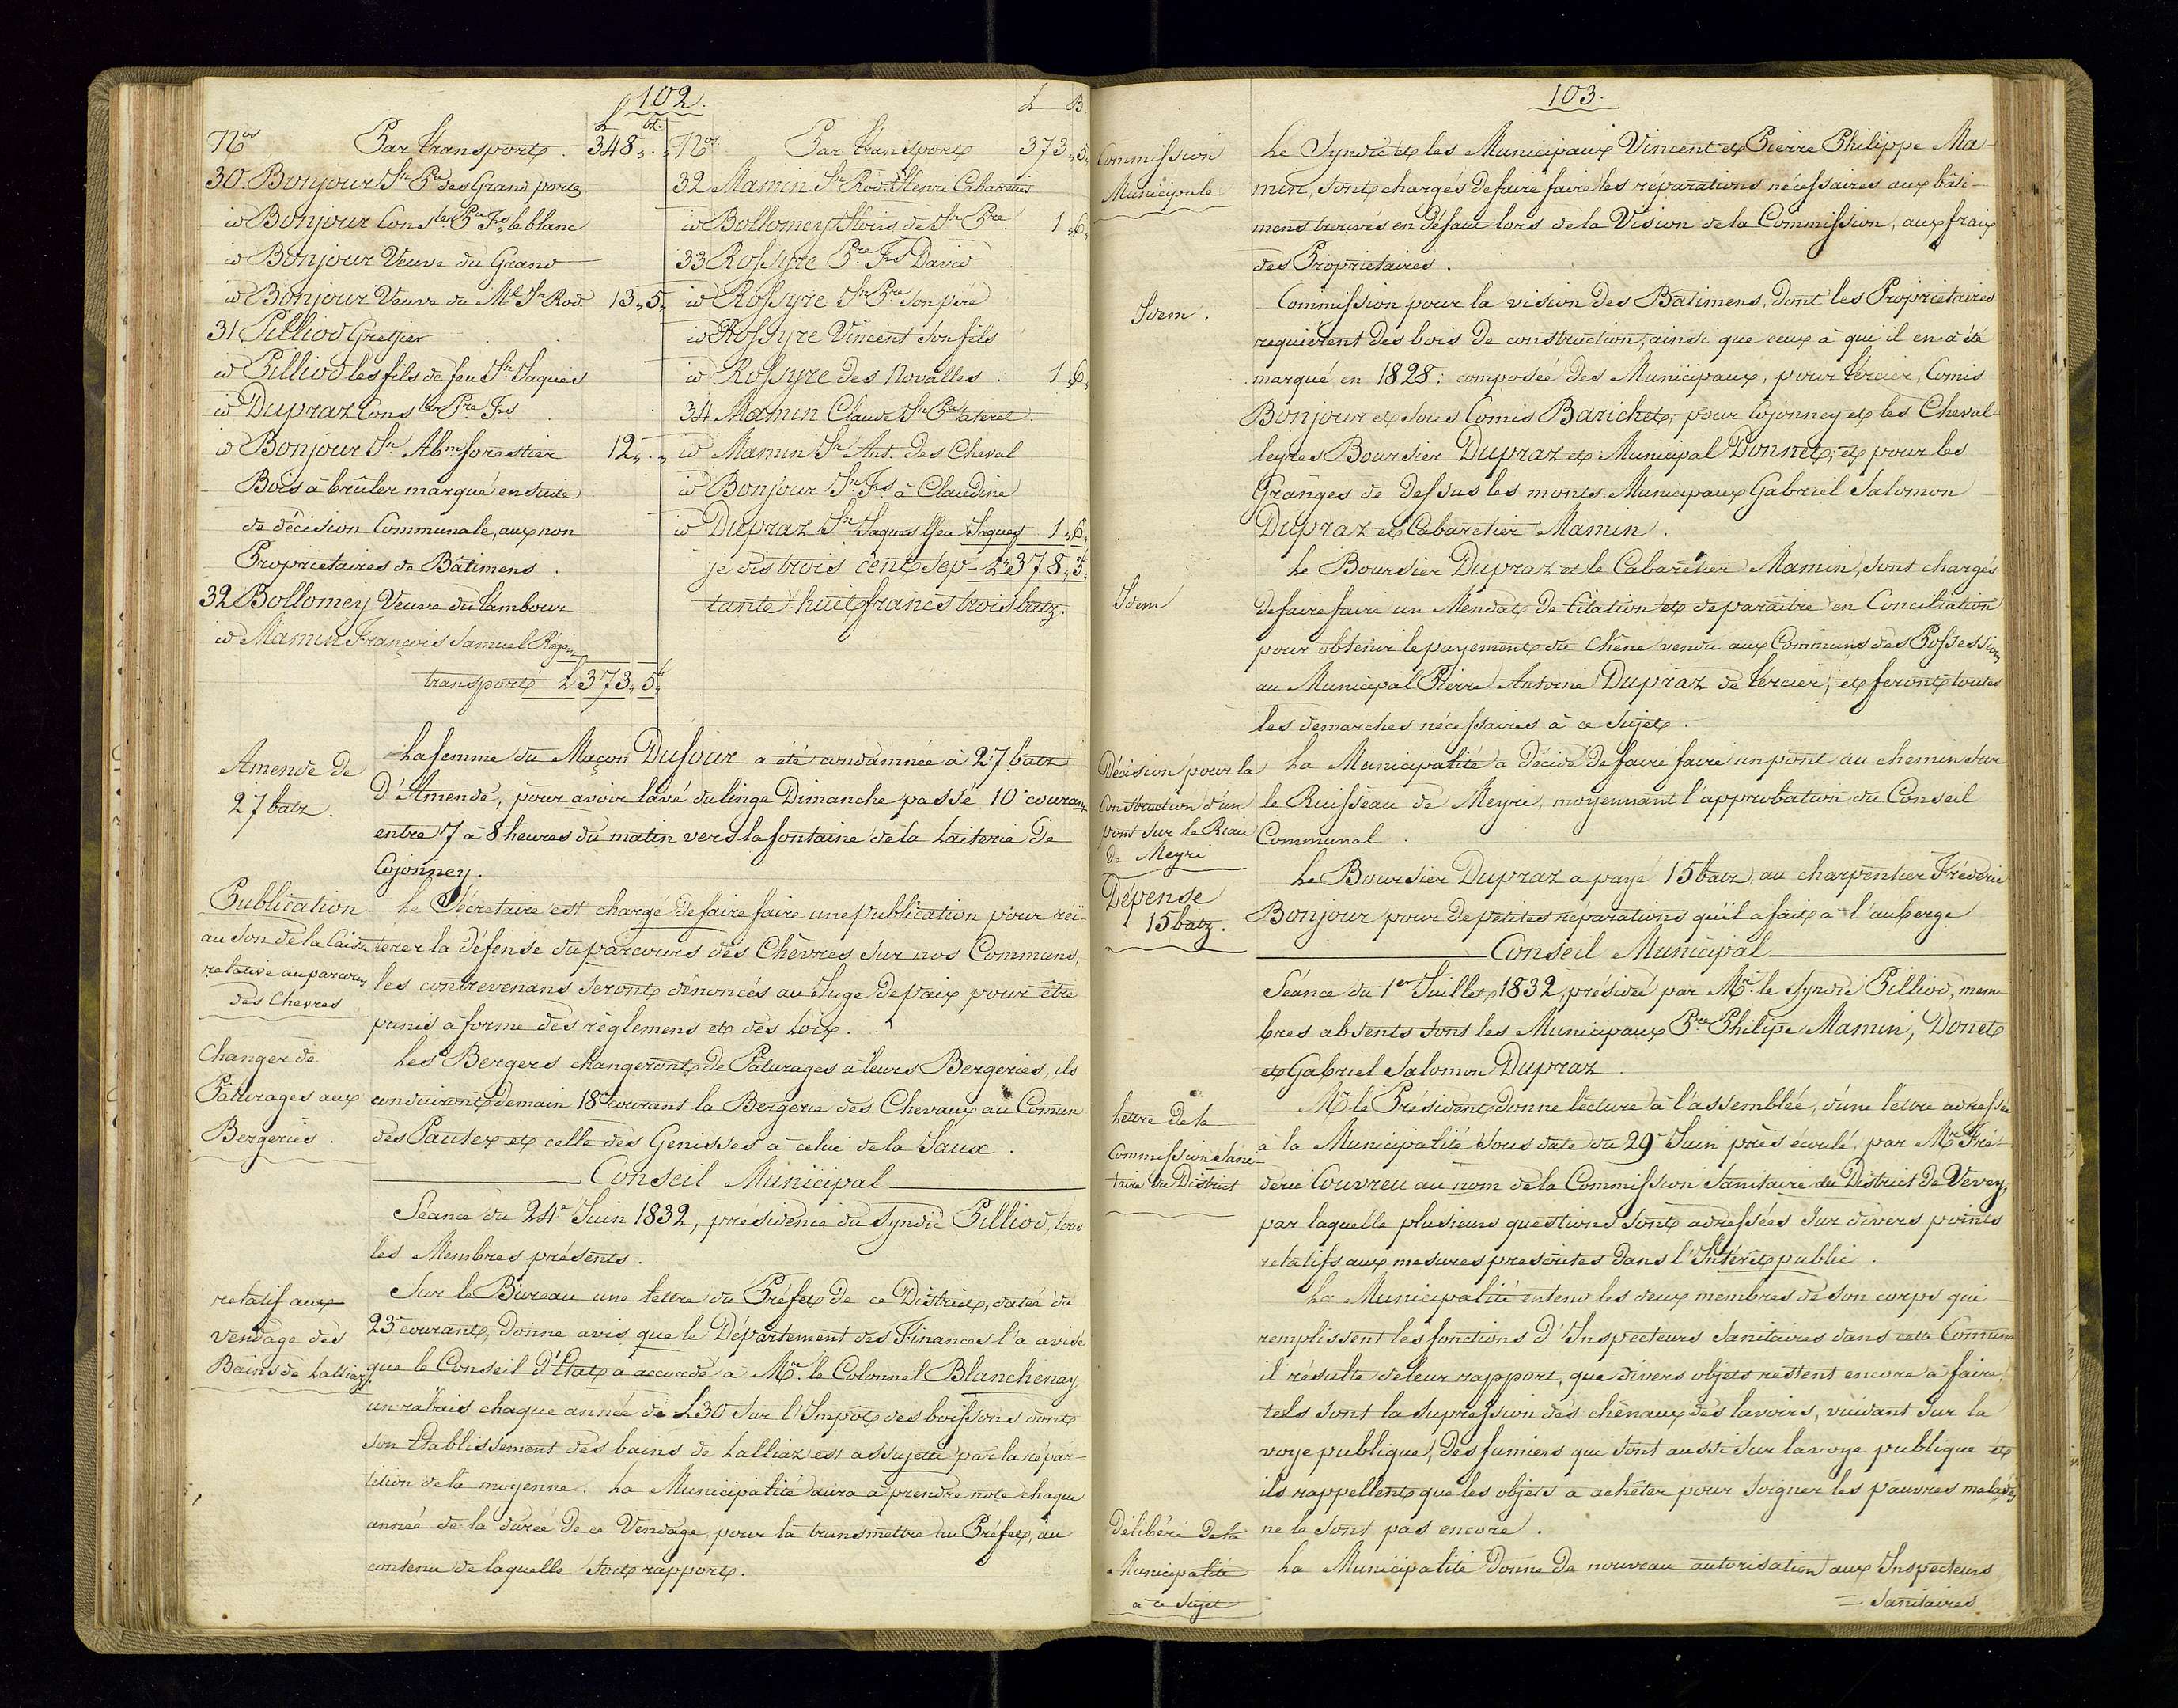 102.
L bz.
Nos Par transport . 348 „ . „
30 Bonjour Jn Pre des Grand portes
id Bonjour Conser Pre Fs le blanc
id Bonjour Veuve du Grand
id Bonjour Veuve du Ml Jn Rod 13 „ 5 „
31 Pilliod Greffier
id Pilliod les fils de feu Jn Jaques
id Dupraz Conser Pre Frs
id Bonjour Jn Abm forestier 12 „ . „
Bois à brûler marqué ensuite
de décision Communale, aux non
Propriétaires de Bâtimens .
32 Bollomey Veuve du tambour
id Mamin François Samuel Régent
transport L 373 „ 5 „
L B
Nos Par transport 373 „ 5 „
32 Mamin Jn Rod. Henri Cabaretier
id Bollomey Louis de Jn Pre 1 „ 6 „
33 Rossyre Pre Frs David
id Rossyre Jn Pre son père
id Rossyre Vincent son fils
id Rossyre des Novalles . 1 „ 6 „
34 Mamin Claude Jn Pre
id Mamin Jn Ant. des Cheval
id Bonjour Jn Frs à Claudine
id Dupraz Jn Jaques ffeu Jaques 1 „ 6 „
je dis trois cent sep- L 378 „ 3 „
tante-huit francs trois batz.
Amende de
27 batz.
La femme du Maçon Dufour a été condamnée à 27 batz
d'Amende, pour avoir lavé du linge Dimanche passé 10e courant
entre 7 à 8 heures du matin vers la fontaine de la Laiterie de
Cojonney.
Publication
au son de la Caisse
relative au parcours
des Chevres
Le Sécretaire est chargé de faire faire une publication pour réi-
terer la défense du parcours des Chèvres sur nos Communs,
les contrevenans seront dénoncés au Juge de paix pour être
punis à forme des règlemens et des Loix .
Changer de
Pâturages aux
Bergeries .
Les Bergers changeront de Pâturages à leurs Bergeries, ils
conduiront demain 18e courant la Bergerie des Chevaux au Comun
des Pautex et celle des Genisses à celui de la Saux .
Conseil Municipal
Séance du 24e Juin 1832, présidence du Syndic Pilliod, tous
les Membres présents .
relatif aux
vendage des
Bains de Lalliaz
Sur le Bureau une lettre du Préfet de ce District, datée du
23e courant, donne avis que le Département des Finances l'a avisé
que le Conseil d'Etat a accordé à Mr. le Colonnel Blanchenay
un rabais chaque année de L30 sur l'Impot des boissons dont
son Etablissement des bains de Lalliaz est assujetti par la répar-
tition de la moyenne . La Municipalité aura à prendre note chaque
année de la durée de ce Vendage, pour la transmettre au Préfet, au
contenu de laquelle soit rapport .
103.
Commission
Municipale
Le Syndic et les Municipaux Vincent et Pierre Philippe Ma-
min, sont chargés de faire faire les réparations nécessaires aux bâti-
mens trouvés en défaut lors de la Vision de la Commission, aux fraix
des Propriétaires .
Idem .
Commission pour la vision des Bâtimens, dont les Propriétaires
requièrent des bois de construction, ainsi que ceux à qui il en a été
marqué en 1828 ; composée des Municipaux, pour tercier, Comis
Bonjour et sous Comis Barichet ; pour Cojonney et les Cheval-
leyres Boursier Dupraz et Municipal Donnet ; et pour les
Granges de dessus les monts Municipaux Gabriel Salomon
Dupraz et Cabaretier Mamin .
Idem
Le Boursier Dupraz et le Cabaretier Mamin, sont chargés
de faire faire un Mendat de Citation et de paraître en Conciliation
pour obtenir le payement du Chêne vendu aux Communs des Possessions
au Municipal Pierre Antoine Dupraz de tercier, et feront toutes
les demarches nécessaires à ce sujet .
Décision pour la
Construction d'un
pont sur le Riau
de Meyri
La Municipalité a décidé de faire faire un pont au chemin sur
le Ruisseau de Meyri, moyennant l'approbation du Conseil
Communal .
Dépense
15 batz .
Le Boursier Dupraz a payé 15 batz, au charpentier Fréderic
Bonjour pour de petites réparations qu'il a fait à l'auberge
Conseil Municipal
Séance du 1er Juillet 1832, présidée par Mr. le Syndic Pilliod, mem-
bres absents sont les Municipaux Pre Philipe Mamin, Donet
et Gabriel Salomon Dupraz .
Lettre de la
Commission Sani-
taire du District
Mr le Président donne lecture à l'assemblée, d'une lettre adressée
à la Municipalité sous date du 29e Juin près écoulé, par Mr Fré-
deric Couvreu au nom de la Commission Sanitaire du District de Vevey,
par laquelle plusieurs questions sont adressées sur divers points
relatifs aux mesures prescrites dans l'Intérêt public .
La Municipalité entend les deux membres de son corps qui
remplissent les fonctions d'Inspecteurs Sanitaires dans cette Commune
il résulte de leur rapport, que divers objets restent encore à faire,
tels sont la supression des chênaux des lavoirs, vuidant sur la
voye publique, des fumiers qui sont aussi sur la voye publique et
ils rappellent que les objets à achêter pour soigner les pauvres malades
ne le sont pas encore .
Délibéré de la
Municipalité
à ce sujet
La Municipalité donne de nouveau autorisation aux Inspecteurs
Sanitaires